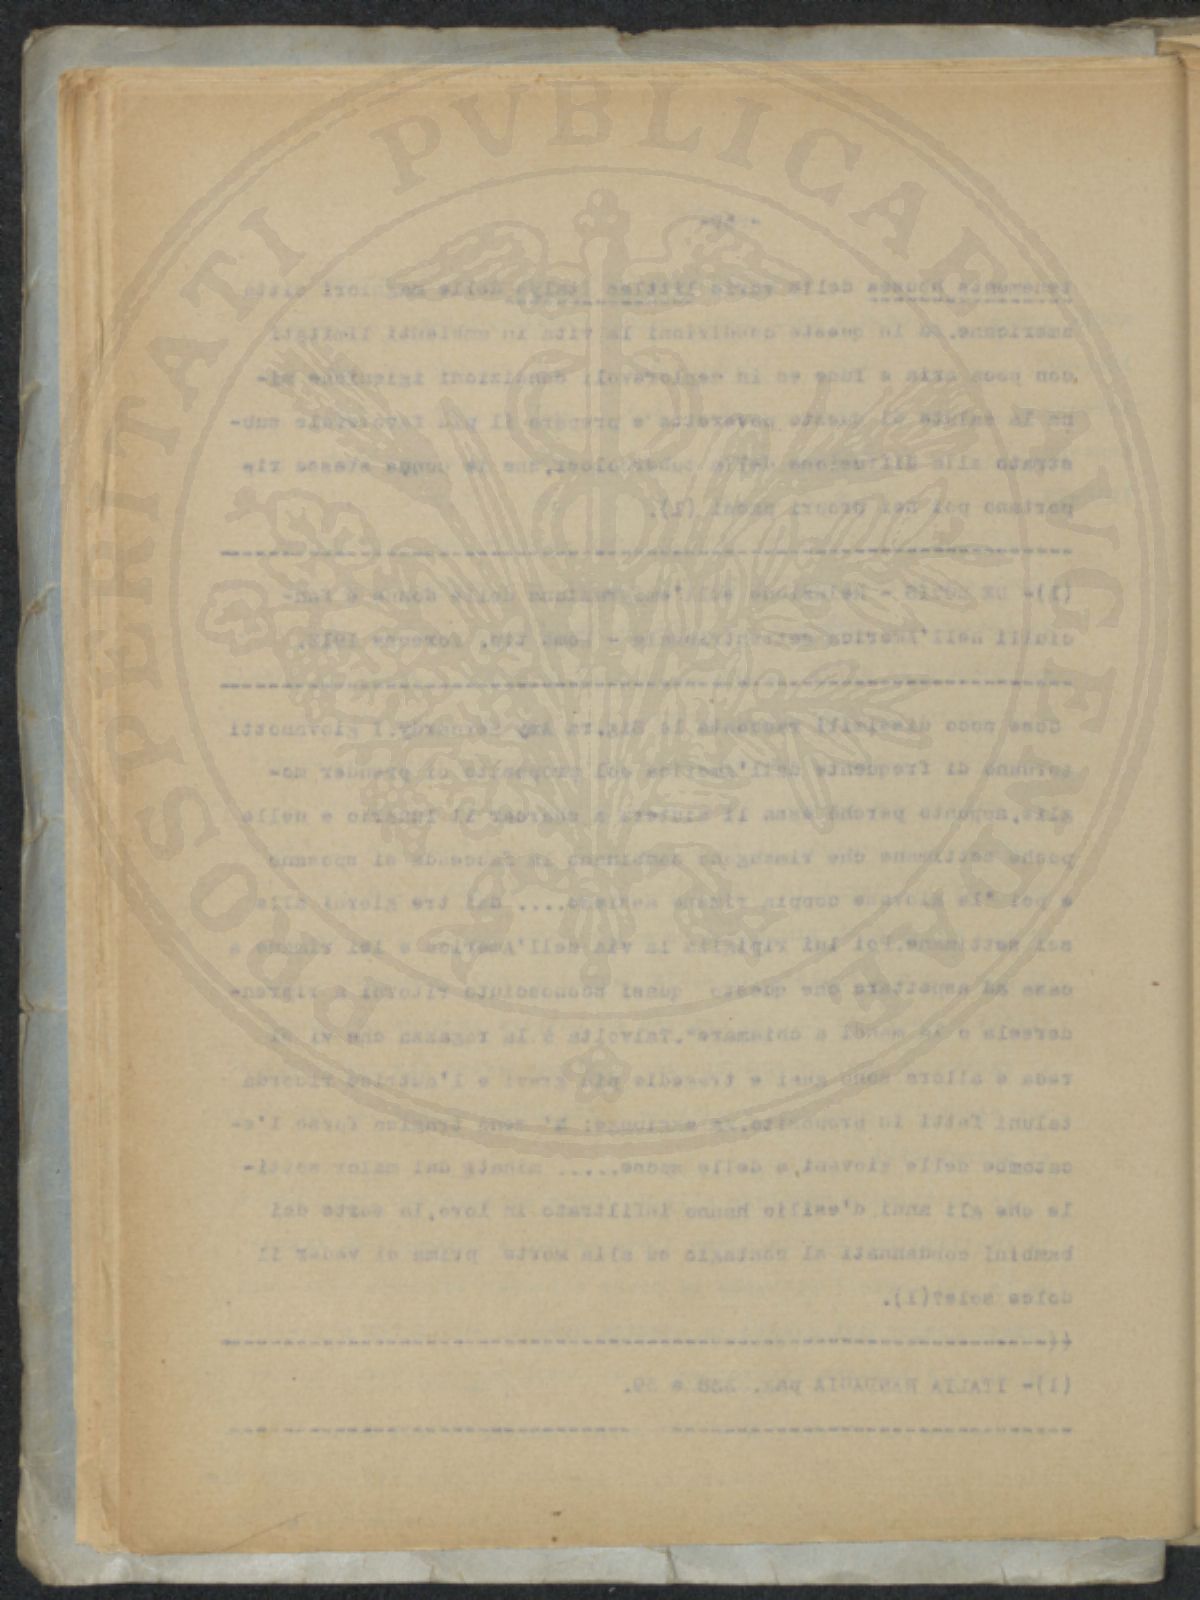 PROSPERITATI PVBLICAE AVGENDAE
tenements houses delle varie littles Italys delle maggiori città
americane. in queste condizioni la vita in ambienti limitati
con poca aria e luce ed in deplorevoli condizioni igieniche mi-
na la salute di queste poverette e prepara il più favorevole sub-
strato alla diffusione della tubercolosi, che le donne stesse rim
portano poi nei propri paesi (1).
(1)- DE - Relazione sull'emigrazione delle donne e fan-
ciulli nell'America settentrionale - Roma tip. 
Cose poco dissimili racconta la Sig.ra Amy Bernardy. I giovanotti
tornano di frequente dall'America col proposito di prender mo-
glie, appunto perchè essa li aiuterà a e nelle
poche settimane che rimangono combinano la faccenda si sposano
e poi "la giovane coppia rimane assieme.... dai tre giorni alle
sei settimane. Poi lui ripiglia la via dell'America e lei rimane a
casa ad aspettare che questo quasi sconosciuto ritorni a ripren-
dersela o la mandi a chiamare". Talvolta è la ragazza che vi si
reca e allora sono guai e tragedie più gravi e l'autrice ricorda
taluni fatti in proposito, ed aggiunge: E' meno tragica forse l'e-
catombe delle giovani, e delle spose..... minate dal malor sotti-
le che gli anni d'esilio hanno infiltrato in loro, la sorte dei
bambini condannati al contagio ed alla morte prima di veder il
dolce sole?(1).
(1)- ITALIA RANDAGIA pag. 338 e 39.